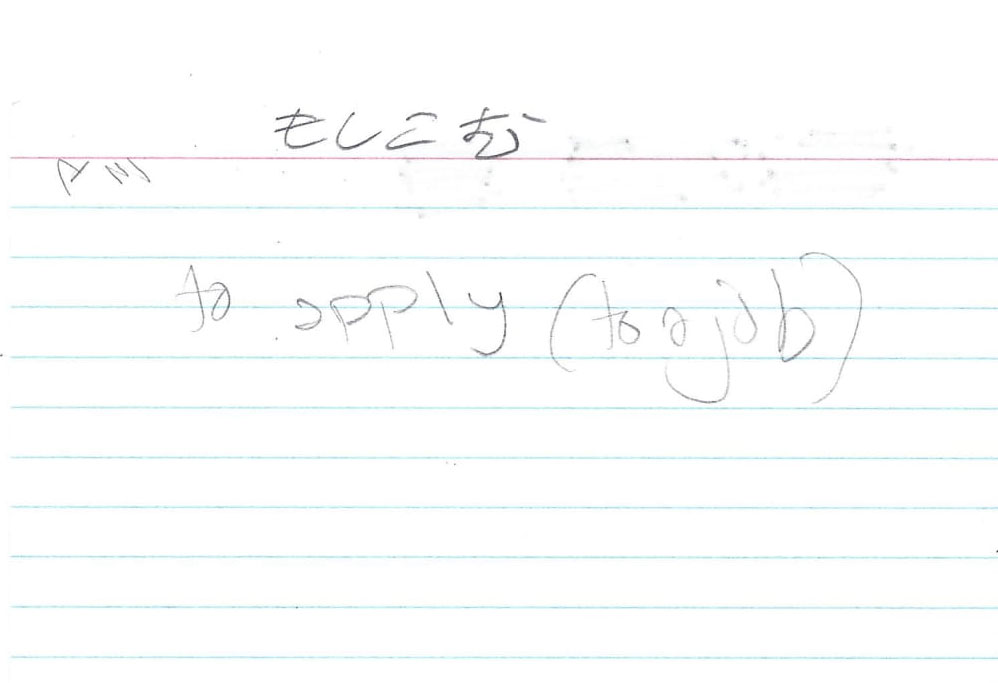 もしこむ
to apply (to a job)